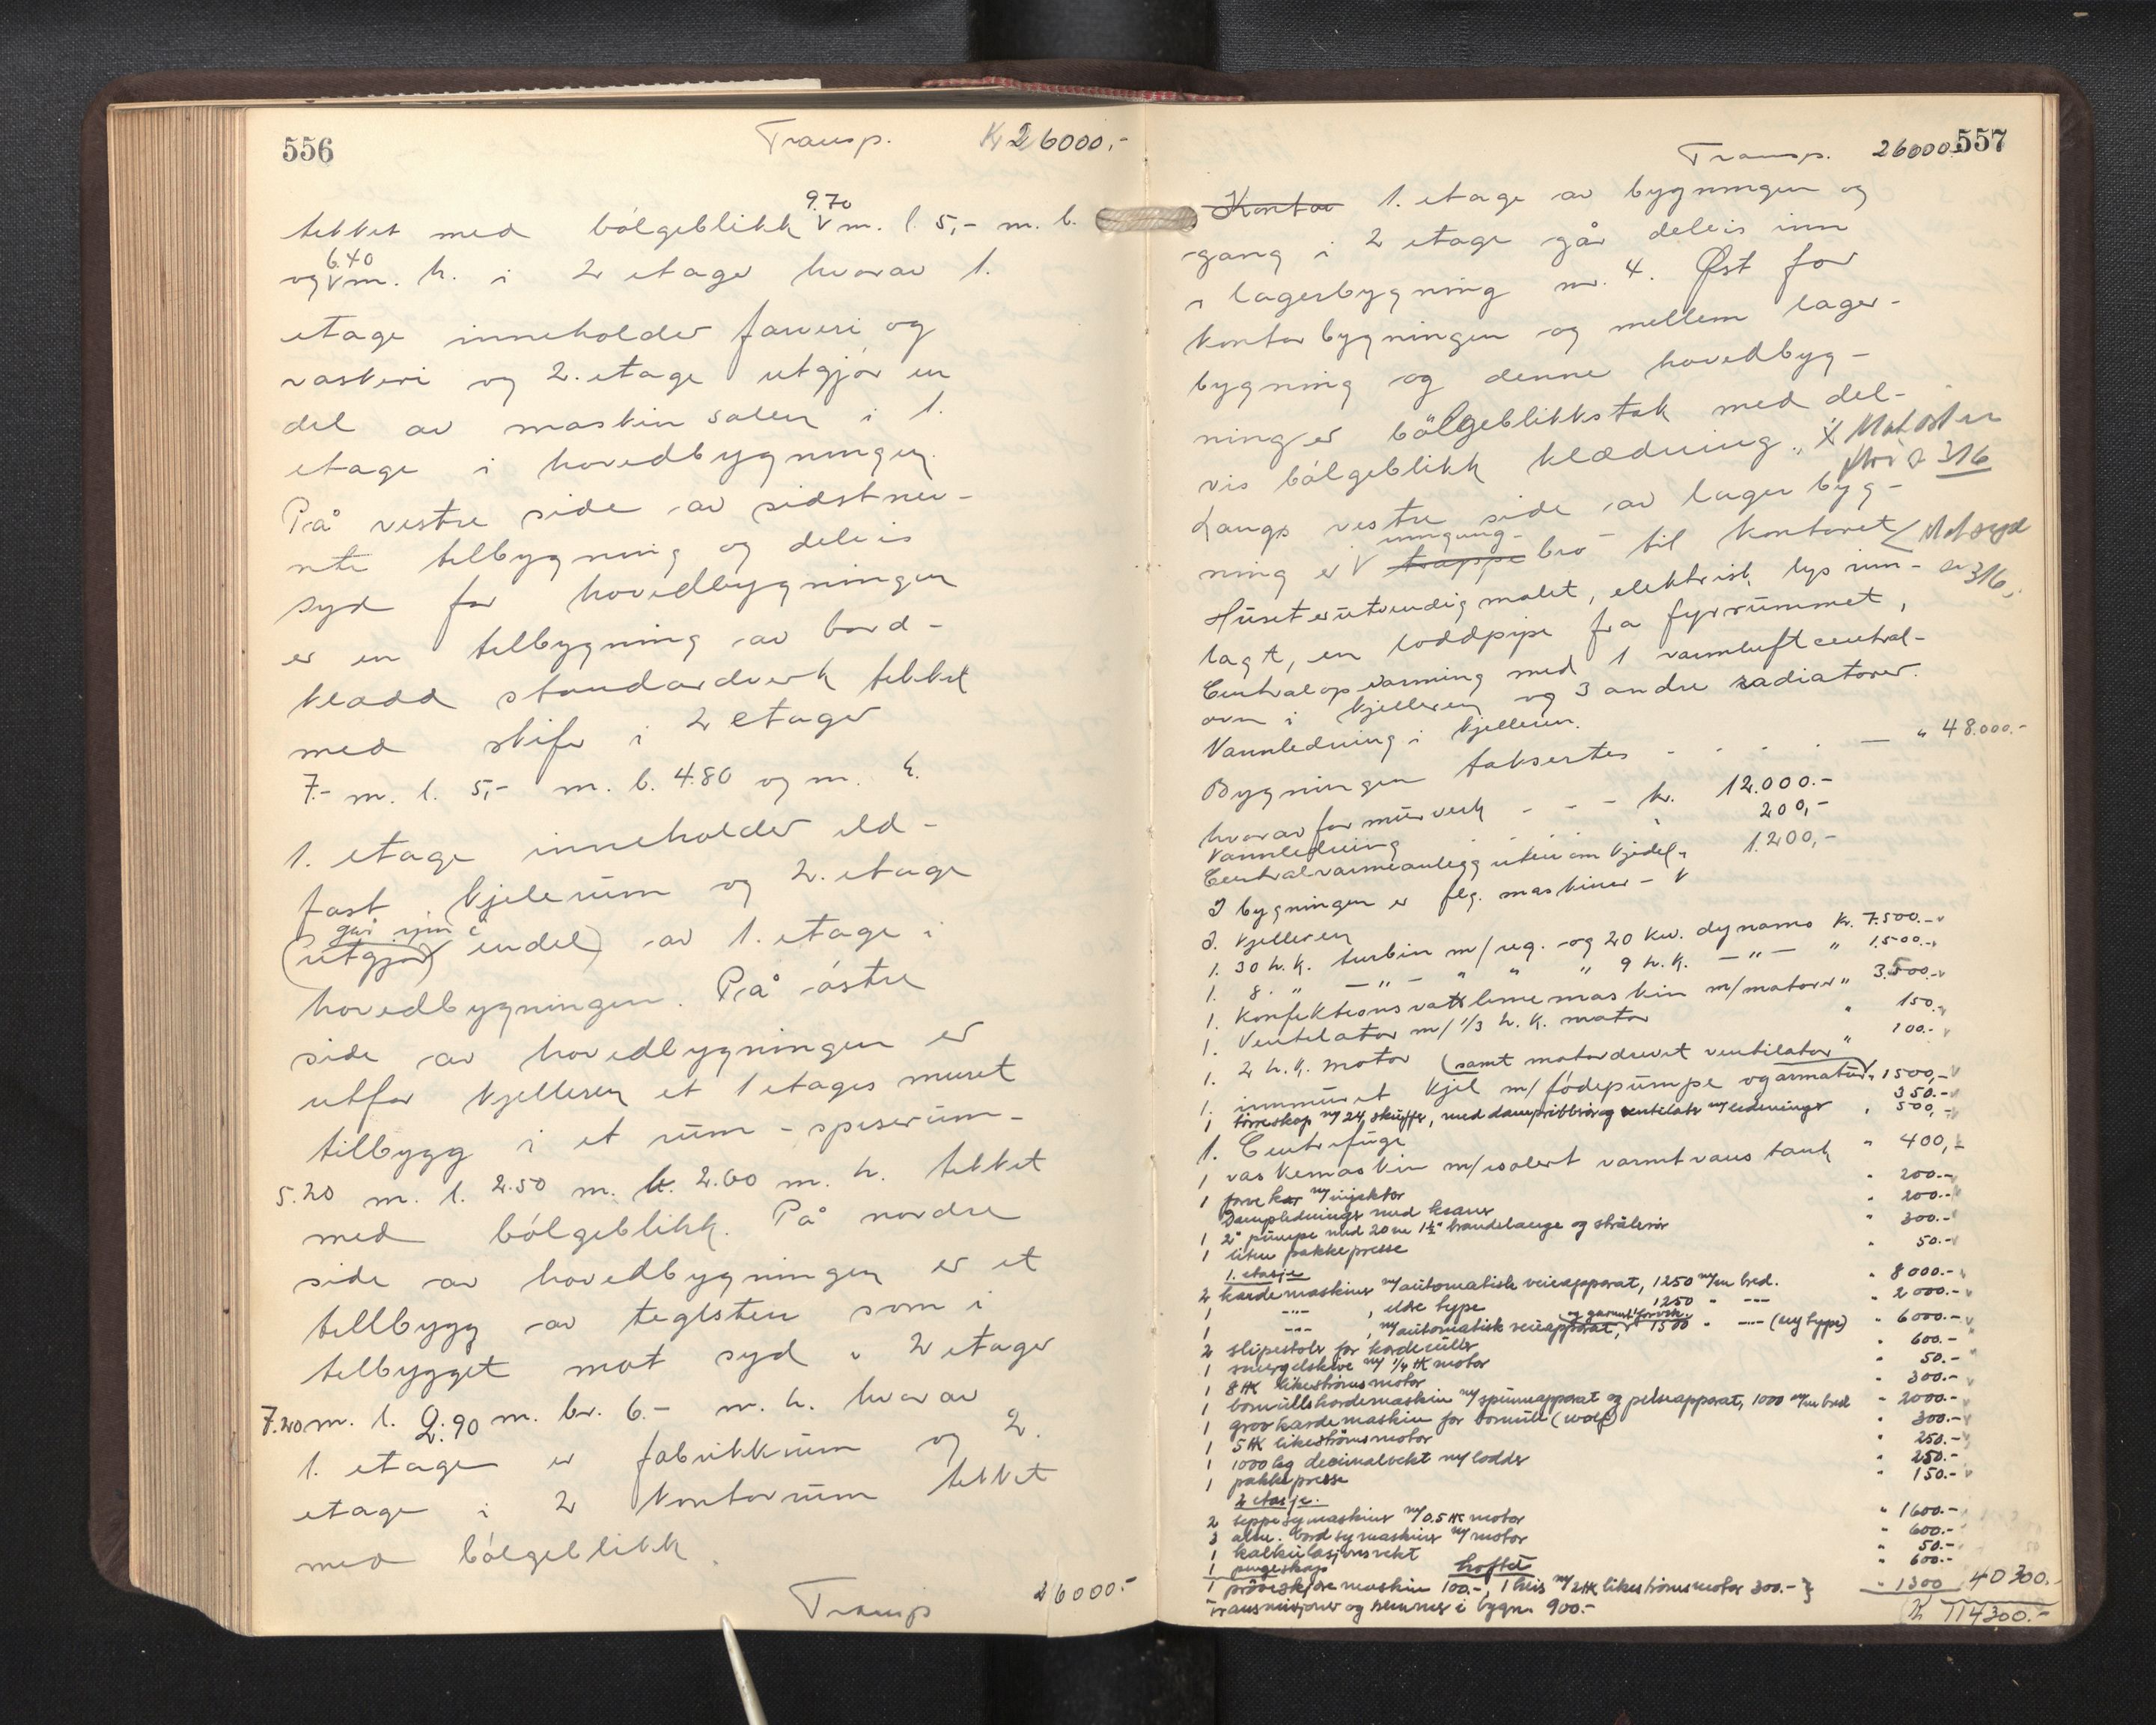 556
Transp. Kr 26000,-
tekket med bölgeblikk 9.70 m. l. 5,- m. b.
og 6.40 m. h. i 2 etager hvorav 1.
etage inneholder farveri og
vaskeri og 2. etage utgjör en
del av maskinsalen i 1.
etage i hovedbygningen.
På vestre side av sidstnev-
nte tilbygning og deleis
syd for hovedbygningen
er en tilbygning av bord-
kledd standardverk tekket
med skifer i 2 etager
7.- m. l. 5,- m. b. 4.80 og m. h.
1. etage inneholder ild-
fast kjelerum og 2. etage
går inn i
(utgjör endel) av 1. etage i
hovedbygningen. På östre
side av hovedbygningen er
utfor kjelleren et 1 etages muret
tilbygg i et rum - spiserum -
5.20 m. l. 2.50 m. b. 2.60 m. h. tekket
med bölgeblikk. På nordre
side av hovedbygningen er et
tillbygg av teglsten som i
tilbygget mot syd i 2 etager
7.20 m. l. 2.90 m. br. 6.- m. h. hvorav
1. etage er fabrikkrum og 2.
etage i 2 kontorrum tekket
med bölgeblikk.
Transp 26000.-
557
Transp. 26000.
Kontor 1. etage av bygningen og
gang i 2 etage går deleis inn
i lagerbygning nr. 4. Øst for
kontorbygningen og mellem lager-
bygning og denne hovedbyg-
ning er bölgeblikkstak med del-
vis bölgeblikk klædning. X Mot öst er
316
Langs vestre side av lager byg-
ning er V inngang- trappe bro til kontoret / Mot syd
se 316.
Huset er utvendig malet, elektrisk lys inn-
lagt, en loddpipe fra fyrrummet,
Centralopvarming med 1 varmluft central-
ovn i kjelleren og 3 andre radiatorer.
Vannledning i kjelleren.
Bygningen takseres - - - - " 48.000.-
hvorav for murverk - - - kr. 12.000.-
Vannledning " 200,-
Centralvarmeanlegg utenom kjedel " 1.200,-
I bygningen er flg. maskiner - V
I. kjelleren
1. 30 h.k. turbin m/ reg. og 20 kw. dynamo kr. 7.500.-
1. 8. " -"- " " " 9 h.k. -"- " 1.500.-
1. Konfektionsvattlimemaskin m/motorer " 3.500.-
1. Ventilator m/ 1/3 h.k. motor " 150.-
1. 2 h.k. motor " 100.-
(samt motordrevet ventilator)
1. innmuret kjel m/ födepumpe og armatur " 1500,-
1 törreskap m/ 24 skuffer, med dampribberör og ventilator m/ledninger " 350.-
1. Centrifuge " 500,-
1 vaskemaskin m/isolert varmtvans tank " 400,-
1 farvekar m/injektor " 200.-
Dampledninger med kraner " 200.-
1 2" pumpe med 20 m 1½" brandslange og strålerör " 300.-
1 liten pakkepresse " 50.-
1. etasje
2 kardemaskiner m/automatisk veieapparat, 1250 m/m bred. " 8000.-
1 -"- , eldre type 1250 " -"- " 2000.-
og garnutforsel
1 -"- , m/automatisk veieapparat, V 1500 " -"- (ny type) " 6000.-
2 slipestoler for karderuller " 600.-
1 smergelskive m/ 1/4 HK motor " 50.-
1 8 HK likeströmsmotor " 300.-
1 bomullskardemaskin m/spinneapparat og pelseapparat, 1000 m/m bred " 2000.-
1 grovkardemaskin for bomull (wolf) " 300.-
1 5 HK likeströmsmotor " 250.-
1 1000 kg decimalvekt m/lodder " 250.-
1 pakkepresse " 150.-
2 etasje.
2 teppesymaskiner m/0.5 HK motor " 1600.-
3 alm. bordsymaskiner m/ motor " 600.-
1 kalkulasjonsvekt " 50.-
1 pengeskap " 600.-
Loftet
1 pröveskjæremaskin 100.-, 1 heis m/2HK likeströmsmotor 300.- }
Transmisjoner og remmer i bygn. 900.- " 1300 40300.-
Kr 114300.-